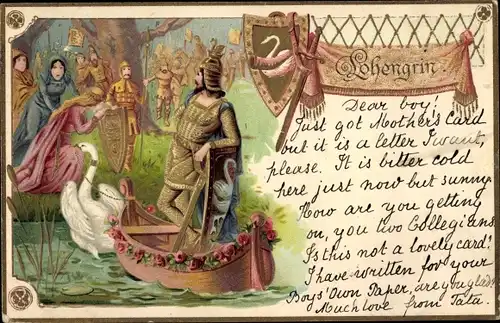 Lohengrin.
Dear boy!
Just got Mother's card
but it is a letter I want,
please. It is bitter cold
here just now but sunny.
How are you getting
on, you two Collegians.
Is this not a lovely card!
I have written for your
Boys' Own Paper, are you glad?
Much love from Tata.